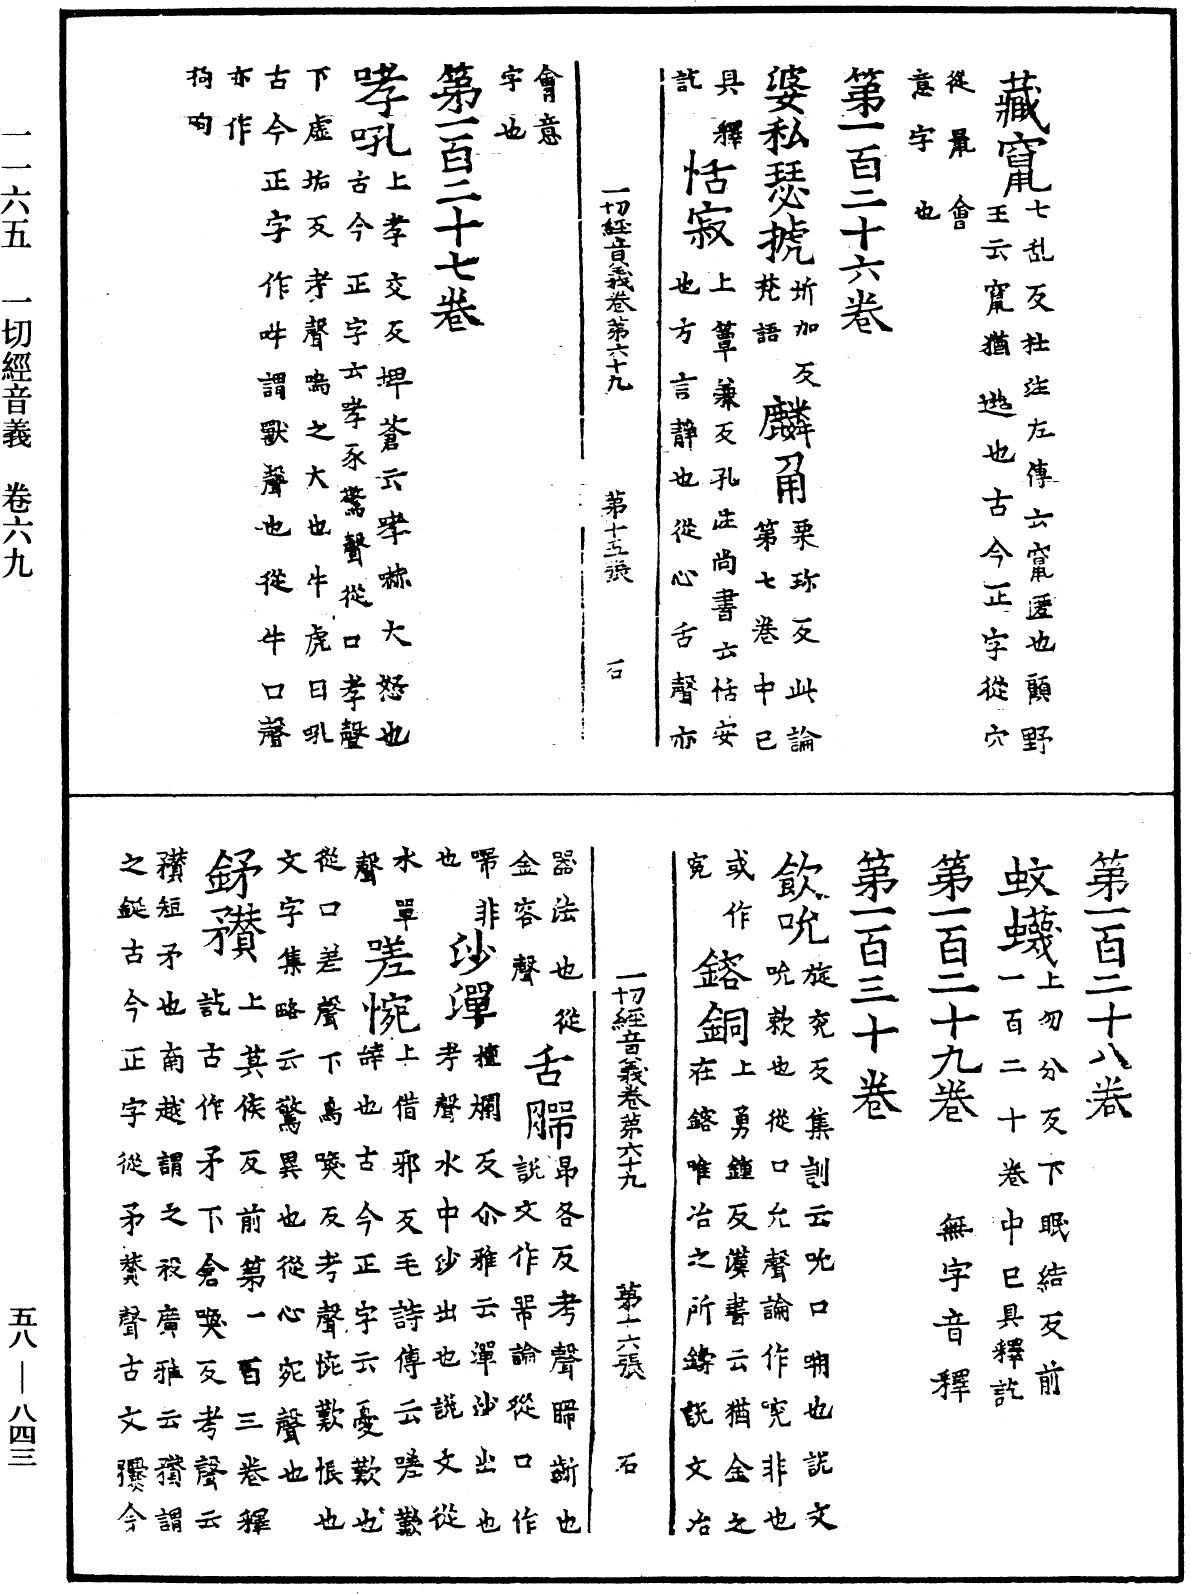 一一六五　一切經音義　卷六九
五八—八四三
藏竄七乱反杜注左傳云竄匿也顧野
王云竄猶逃也古今正字從穴
從鼠會
意字也
第一百二十六卷
婆私瑟搋坼加反
梵語
麟角栗珎反此論
第七卷中已
具釋
訖
恬寂上簟兼反孔注尚書云恬安
也方言靜也從心舌聲亦
一切經音義卷第六十九　第十五張　石
會意
字也
第一百二十七卷
哮吼上孝交反埤蒼云哮㗛大怒也
古今正字云哮豕驚聲從口孝聲
下虛垢反考聲嗚之大也牛虎曰吼
古今正字作吽謂獸聲也從牛口聲
亦作
拘呴
第一百二十八卷
蚊蠛上勿分反下眠結反前
一百二十卷中已具釋訖
第一百二十九卷　無字音釋
第一百三十卷
飲吮旋兖反集訓云吮口𠲿也說文
吮欶也從口允聲論作㕣非也
或作
㝃
鎔銅上勇鍾反漢書云猶金之
在鎔唯冶之所鑄說文冶
一切經音義卷第六十九　第十六張　石
器法也從
金容聲
舌㖸昂各反考聲㖸齗也
說文作㗁論從口作
㖸非
也
沙潬檀爛反尒雅云潬沙出也
考聲水中沙出也說文從
水單
聲
嗟惋上借邪反毛詩傳云嗟歎
辝也古今正字云憂歎也
從口差聲下烏喚反考聲惋歎恨也
文字集略云驚異也從心宛聲也
鉾䂎上莫侯反前第一百三卷釋
訖古作矛下倉喚反考聲云
䂎短矛也南越謂之祋廣雅云䂎謂
之鋋古今正字從矛贊聲古文𥎝今